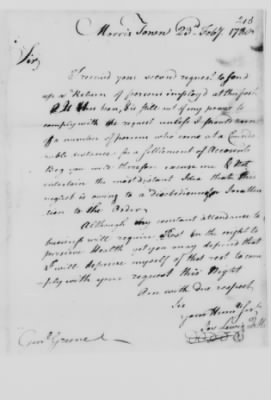 Morris Town 23d. Feb'y 1780
Sir,
I receivd your second request to send
up a Return of persons imploy'd at this Post
but it has been, Sir, totally out of my power to
comply with the request unless I should turn
off a number of persons who come at a Consid-
erable distance for a settlement of Accounts
Beg you will therefore excuse me & not
entertain the most distant Idea that the
neglect is owing to a disobedience or Inatten-
cion to the Orders.
Although my constant attendance to
business will require Rest in the night to
preserve Health yet you may depend that
I will deprive myself of that rest to com-
ply with your request this Night
Am with due respect
Sir
your Hum. Ser.
Jos Lewis
Genl. Greene